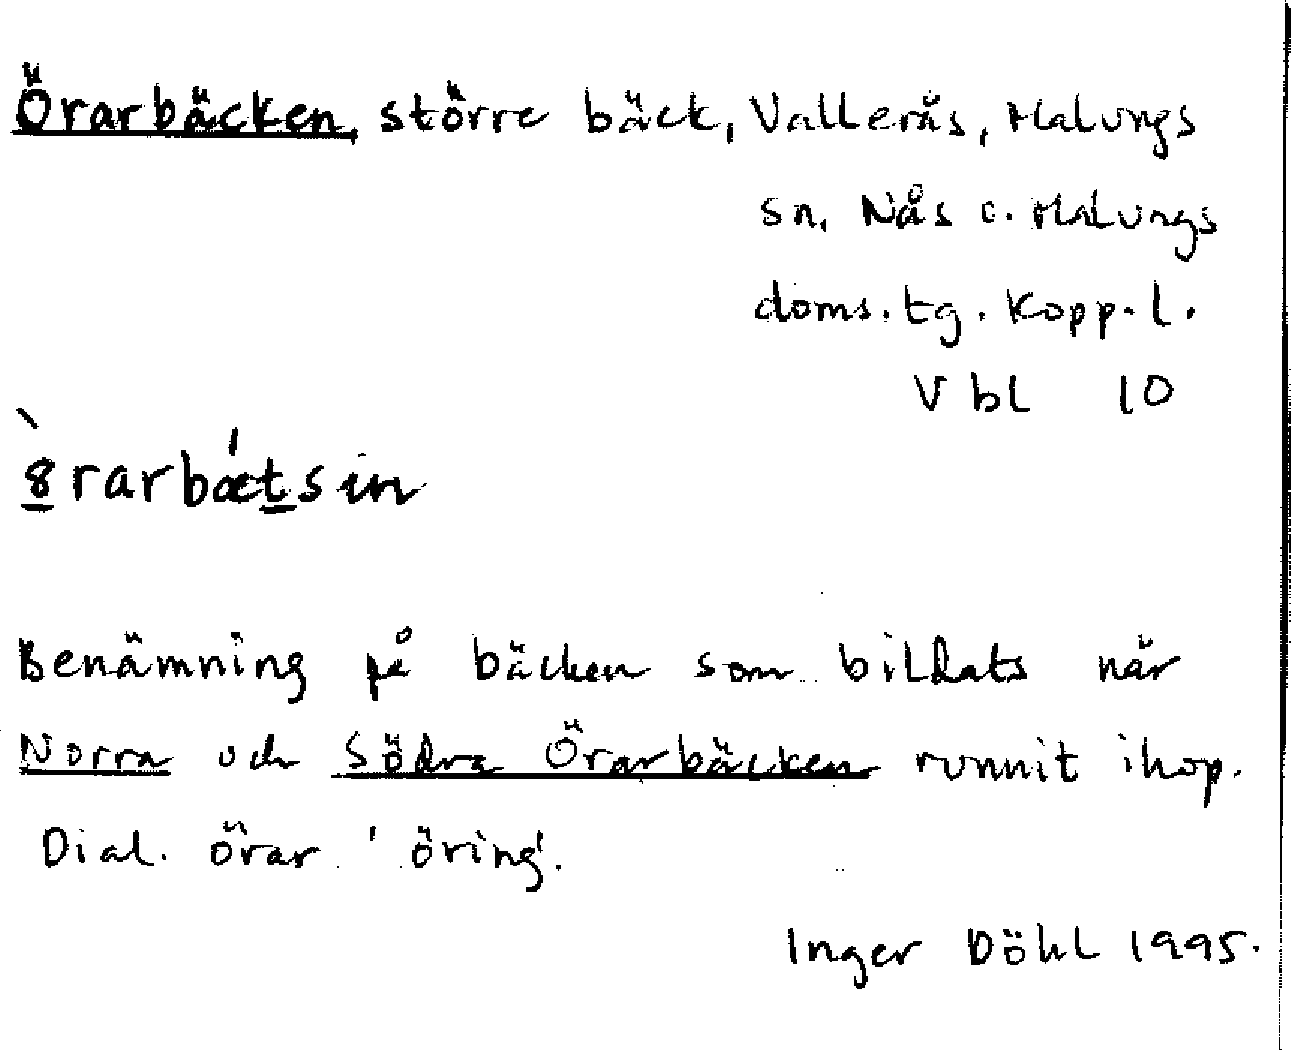 Örarbäcken, större bäck, Vallerås, Malungs
sn, Nås o. Malungs
doms. tg. Kopp. l.
V bl 10
Benämning på bäcken som bildats när
Norra och Södra Örarbäcken runnit ihop.
Dial. örar 'öring'.
Inger Döhl 1995.